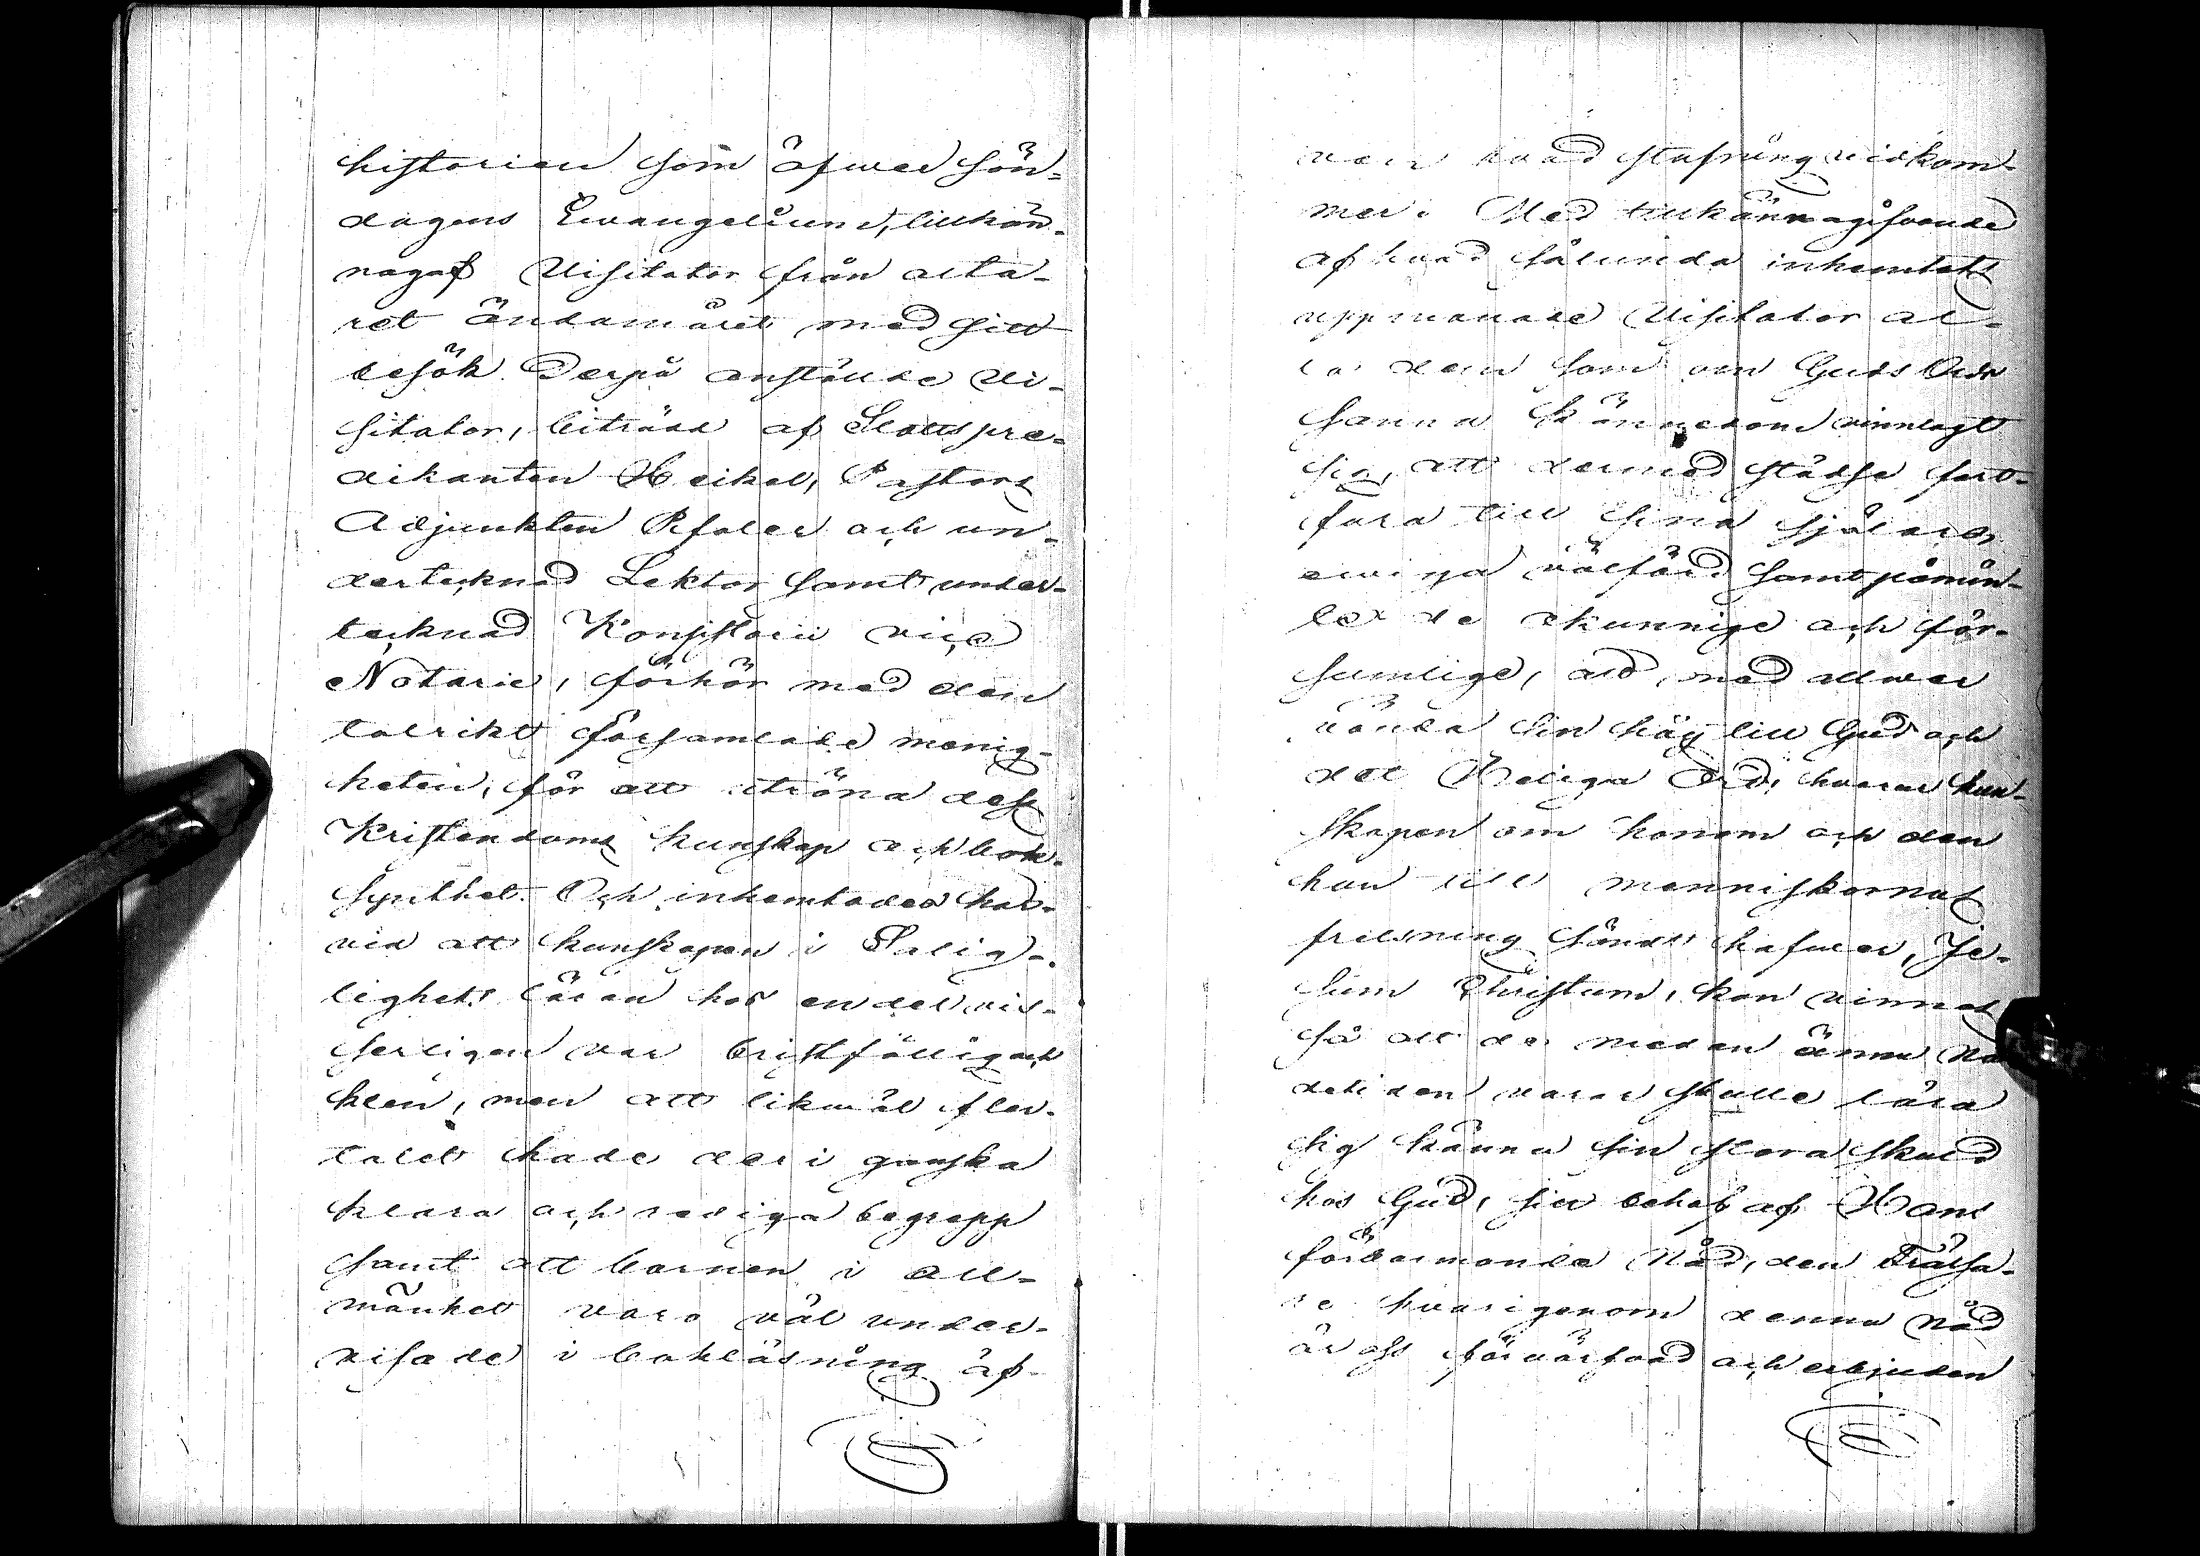 historien som öfwer Sön-
dagens Ewangelium, tillkän-
nagaf Visitator från alta-
ret ändamålet med sitt
besök. Derpå anstälde Vi-
sitator, biträdd af Slottspre-
dikanten Heikel, Pastors
Adjunkten Pfaler och un-
dertecknad Lektor samt under-
tecknad Konsistorii vice
Notarie, förhör med den
talrikt församlade menig-
heten, för att utröna dess
Kristendoms kunskap och bok-
synthet. Och inhemtades här-
vid att kunskapen i Salig-
lighets läran hos en del vis-
serligen var bristfällig och
klen, men att likwäl fler-
talet hade deri ganska
klara och rediga begrepp
samt att barnen i all-
mänhet voro väl under-
visade i bokläsning äf-
ven hvad stafning vidkom-
mer. Med tillkännagifvande
af hvad sålunda inhemtats
uppmanade Visitator al-
la dem som om Guds Ords
sanna kännedom vinnlagt
sig, att dermed städse fort-
fara till sina själars
ewiga välfärd samt påmin-
te de okunnige och för-
sumlige, att, med allwar
vända sin håg till Gud och
det Heliga Ord, hvarur kun-
skapen om honom och den
han till menniskornas
frelsning sändt hafwer, Je-
sum Christum, kan vinnas
så att de medan ännu Nå
detiden varar skulle lära
sig känna sin stora skuld
hos Gud, sitt behof af Hans
förbarmande Nåd, den Frälsa-
re hvarigenom denna nåd
är oss förvärfvad och erbjuden